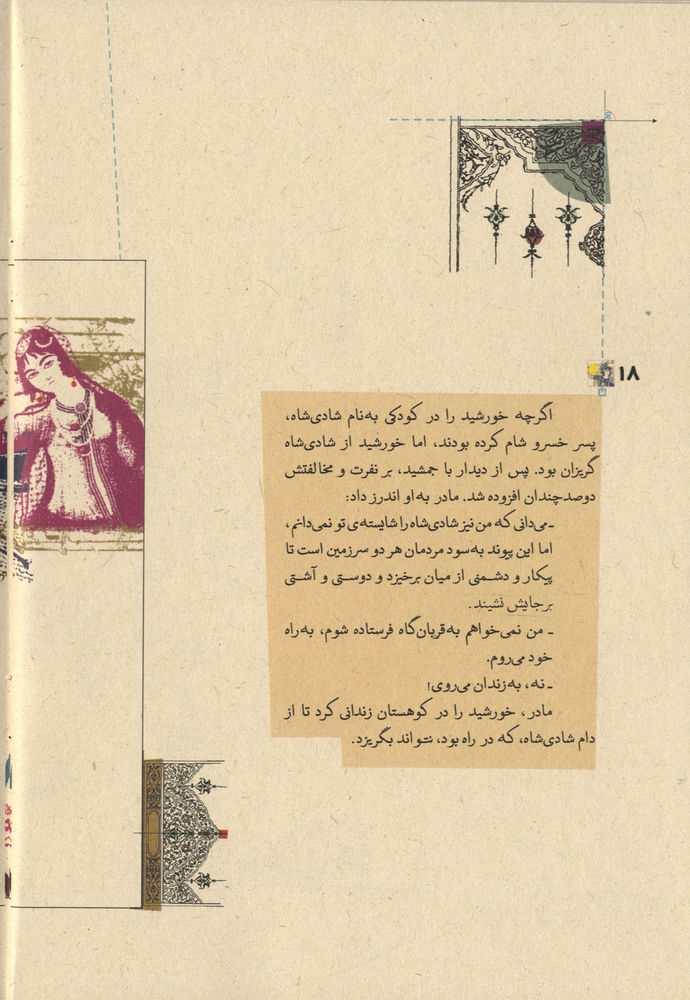 ۱۸
اگرچه خورشید را در کودکی به‌نام شادی‌شاه،
پسر خسرو شام کرده بودند، اما خورشید از شادی‌شاه
گریزان بود. پس از دیدار با جمشید، بر نفرت و مخالفتش
دوصدچندان افزوده شد. مادر به‌او اندرز داد:
ـ می‌دانی که من نیز شادی‌شاه را شایسته‌ی تو نمی‌دانم،
اما این پیوند به‌سود مردمان هر دو سرزمین است تا
پیکار و دشمنی از میان برخیزد و دوستی و آشتی
برجایش نشیند.
ـ من نمی‌خواهم به‌قربان‌گاه فرستاده شوم، به‌راه
خود می‌روم.
ـ نه، به‌زندان می‌روی!
مادر، خورشید را در کوهستان زندانی کرد تا از
دام شادی‌شاه، که در راه بود، نتواند بگریزد.